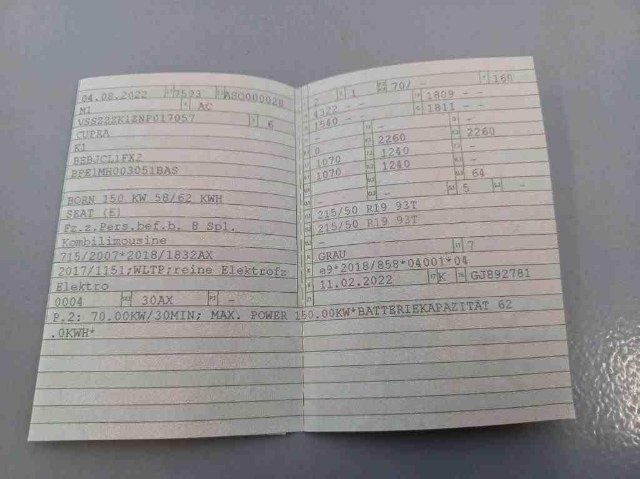 04.08.2022 7593 ASO000028
M1 AC
VSSZZZK1ZNP017057 6
CUPRA
K1
BEBJCL1FX2
BPE1MH003051BAS
BORN 150 KW 58/62 KWH
SEAT (E)
Fz.z.Pers.bef.b. 8 Spl.
Kombilimousine
715/2007*2018/1832AX
2017/1151;WLTP;reine Elektrofz
Elektro
0004 30AX -
2 1 70/ - 160
4322 - - 1809 - -
1540 - - 1811 - -
-
0 2260 2260
1070 1240 -
1070 1240 -
- - 64
- 5 -
215/50 R19 93T
215/50 R19 93T
-
GRAU 7
e9*2018/858*04001*04
11.02.2022 K GJ892781
P.2: 70.00KW/30MIN; MAX. POWER 150.00KW*BATTERIEKAPAZITÄT 62
.0KWH*